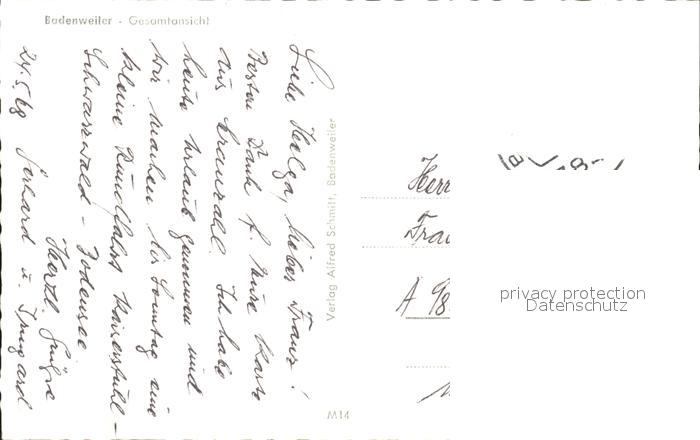 Badenweiler - Gesamtansicht
Liebe Helga, lieber Franz!
Besten Dank f. Eure Karte
aus Kranzahl. Ich habe
heute Urlaub genommen und
wir machen bis Sonntag eine
kleine Rundfahrt
Schwarzwald - Bodensee
Herzl. Grüße
Gerhard u. Irmgard
24.5.68
Verlag Alfred Schmitt, Badenweiler
M14
Herr
Frau
A 98
privacy protection
Datenschutz